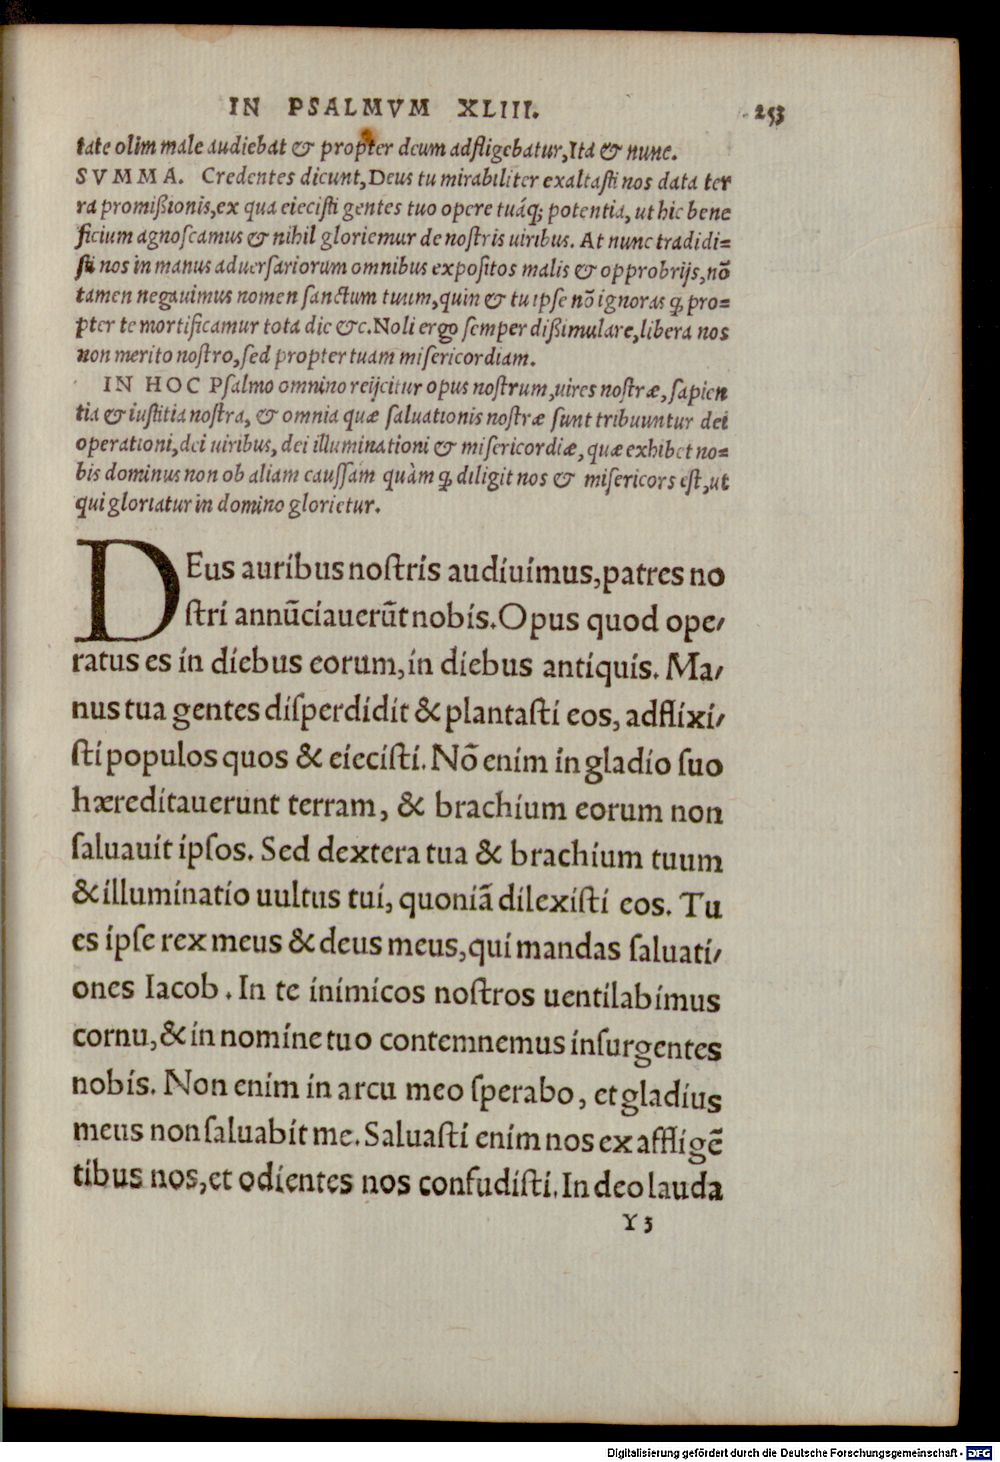 IN PSALMVM XLIII. 253
tate olim male audiebat & propter deum adfligebatur, Ita & nunc.
SVMMA. Credentes dicunt, Deus tu mirabiliter exaltasti nos data ter
ra promißionis, ex qua eiecisti gentes tuo opere tuáq; potentia, ut hic bene
ficium agnoscamus & nihil gloriemur de nostris uiribus. At nunc tradidi=
sti nos in manus aduersariorum omnibus expositos malis & opprobrijs, nō
tamen negauimus nomen sanctum tuum, quin & tu ipse nō ignoras ꝙ pro=
pter te mortificamur tota die &c. Noli ergo semper dißimulare, libera nos
non merito nostro, sed propter tuam misericordiam.
IN HOC Psalmo omnino reijcitur opus nostrum, uires nostræ, sapien
tia & iustitia nostra, & omnia quæ saluationis nostræ sunt tribuuntur dei
operationi, dei uiribus, dei illuminationi & misericordiæ, quæ exhibet no=
bis dominus non ob aliam caussam quàm ꝙ diligit nos & misericors est, ut
qui gloriatur in domino glorietur.
DEus auribus nostris audiuimus, patres no
stri annūciauerūt nobis. Opus quod ope/
ratus es in diebus eorum, in diebus antiquis. Ma/
nus tua gentes disperdidit & plantasti eos, adflixi/
sti populos quos & eiecisti. Nō enim in gladio suo
hæreditauerunt terram, & brachium eorum non
saluauit ipsos. Sed dextera tua & brachium tuum
& illuminatio uultus tui, quoniā dilexisti eos. Tu
es ipse rex meus & deus meus, qui mandas saluati/
ones Iacob. In te inimicos nostros uentilabimus
cornu, & in nomine tuo contemnemus insurgentes
nobis. Non enim in arcu meo sperabo, et gladius
meus non saluabit me. Saluasti enim nos ex affligē
tibus nos, et odientes nos confudisti. In deo lauda
Y 3
Digitalisierung gefördert durch die Deutsche Forschungsgemeinschaft - DFG